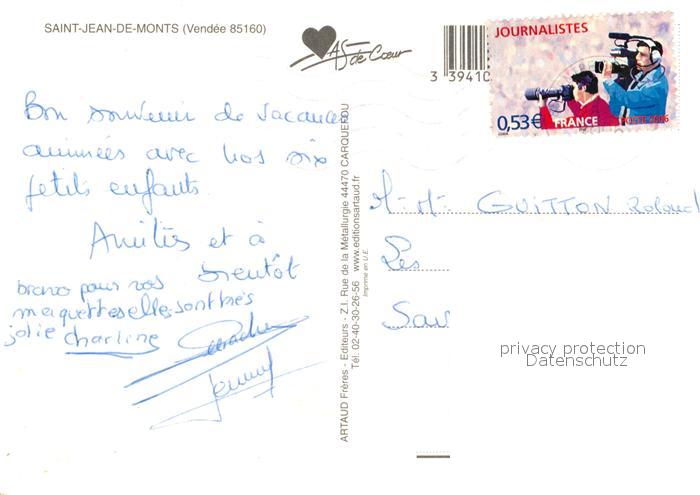 SAINT-JEAN-DE-MONTS (Vendée 85160)
AS de Cœur
3 39410
JOURNALISTES
0,53€ FRANCE LA POSTE 2006
Bon souvenir de vacances
animées avec nos six
petits enfants.
Amitiés et à
bientôt
bravo pour vos
maquettes elle sont très
jolie Charline
ARTAUD Frères - Editeurs - Z.I. Rue de la Métallurgie 44470 CARQUEFOU
Tél. 02-40-30-26-56 www.editionsartaud.fr
Imprimé en U.E.
M. Mme GUITTON Roland
Les
privacy protection
Datenschutz